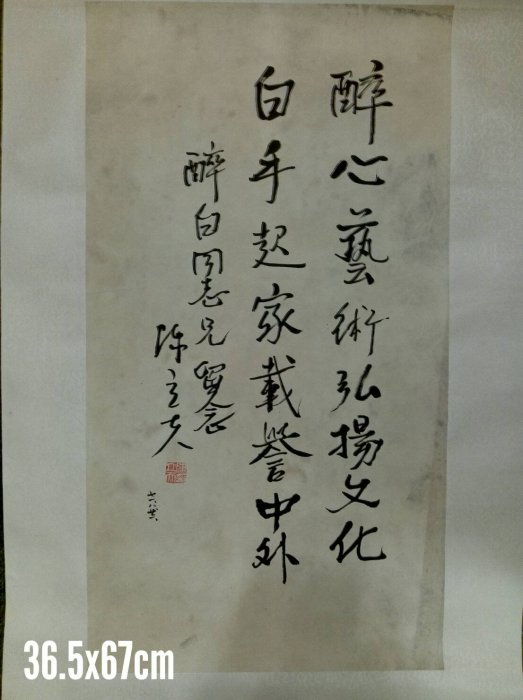 醉心藝術弘揚文化
白手起家載譽中外
醉白同志兄留念
陳立夫
36.5x67cm